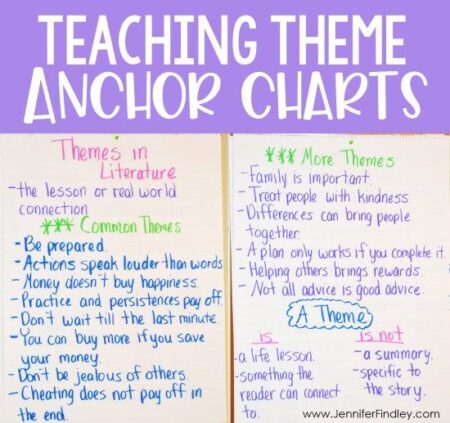 TEACHING THEME
ANCHOR CHARTS
Themes in
Literature
-the lesson or real world
connection
*** Common Themes
-Be prepared.
-Actions speak louder than words.
-Money doesn't buy happiness.
-Practice and persistences pay off.
-Don't wait till the last minute.
-You can buy more if you save
your money.
-Don't be jealous of others.
-Cheating does not pay off in
the end.
*** More Themes
-Family is important.
-Treat people with kindness.
-Differences can bring people
together.
-A plan only works if you complete it.
-Helping others brings rewards.
-Not all advice is good advice.
A Theme
is
-a life lesson.
-something the
reader can connect
to.
is not
-a summary.
-specific to
the story.
www.JenniferFindley.com